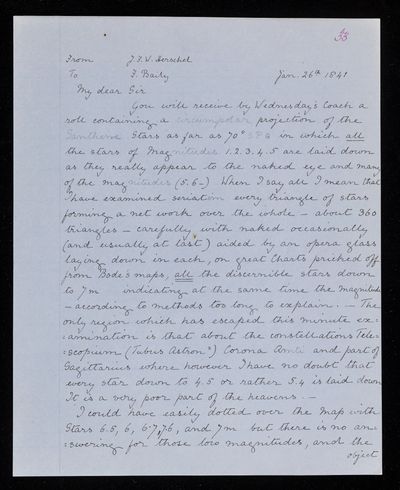 33
From J.F.W. Herschel
To F. Baily Jan. 26th 1841
My dear Sir
You will receive by Wednesday's Coach a
roll containing a circumpolar projection of the
Southern Stars as far as 70° SPD in which all
the stars of Magnitudes 1.2.3.4.5 are laid down
as they really appear to the naked eye and many
of the magnitudes (5.6-) When I say all I mean that
I have examined seriatim every triangle of stars
forming a net work over the whole - about 360
triangles - carefully with naked occasionally
(and usually at last) aided by an opera glass
laying down in each, on great Charts pricked off
from Bode's maps, all the discernible stars down
to 7m indicating at the same time the Magnitude
- according to methods too long to explain. - The
only region which has escaped this minute ex:
:amination is that about the constellations Tele:
:scopium (Tubus Astron.) Corona and part of
Sagittarius where however I have no doubt that
every star down to 4.5 or rather 5.4 is laid down
It is a very poor part of the heavens. -
I could have easily dotted over the Map with
Stars 6.5, 6, 6.7, 7.6, and 7m but there is no an:
:swering for those low magnitudes, and the
object